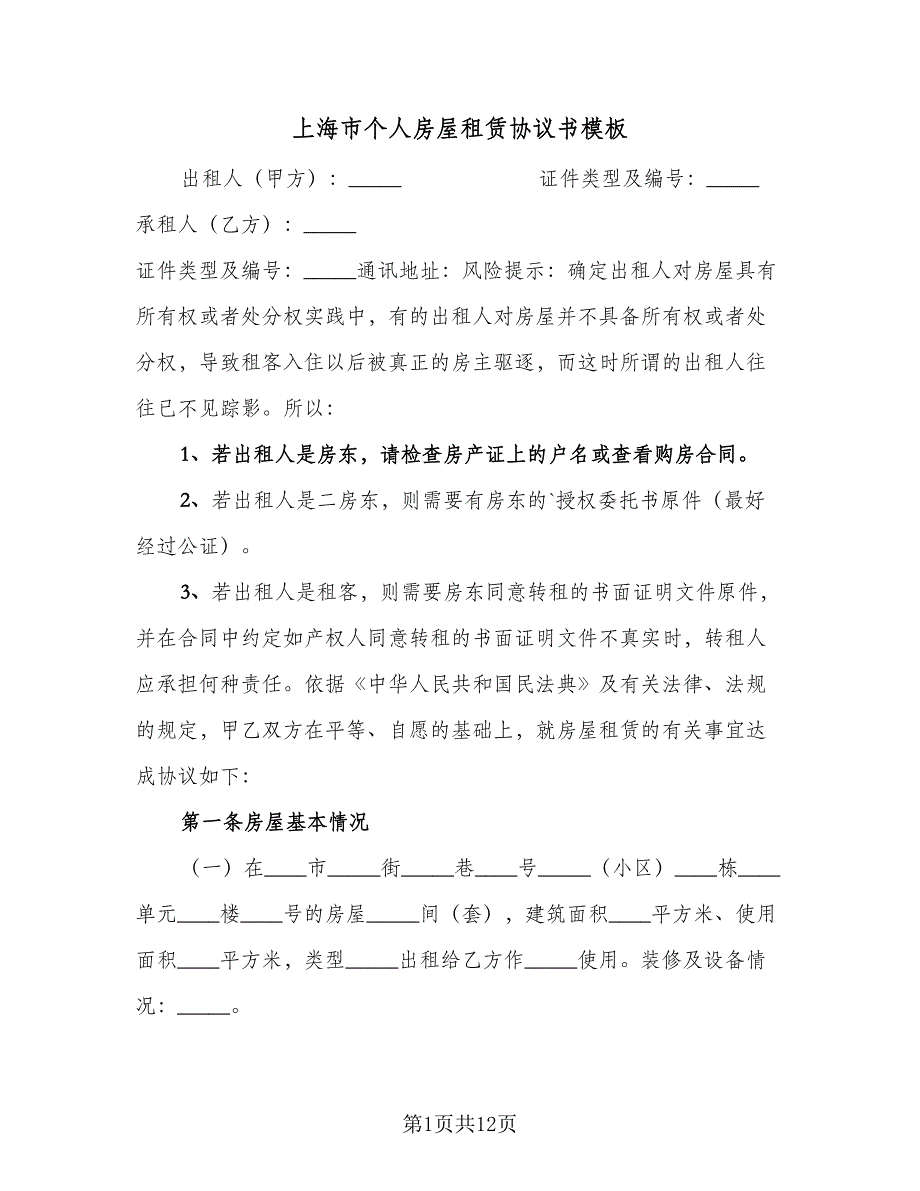 上海市个人房屋租赁协议书模板
出租人（甲方）：_____ 证件类型及编号：_____
承租人（乙方）：_____
证件类型及编号：_____通讯地址：风险提示：确定出租人对房屋具有
所有权或者处分权实践中，有的出租人对房屋并不具备所有权或者处
分权，导致租客入住以后被真正的房主驱逐，而这时所谓的出租人往
往已不见踪影。所以：
1、若出租人是房东，请检查房产证上的户名或查看购房合同。
2、若出租人是二房东，则需要有房东的`授权委托书原件（最好
经过公证）。
3、若出租人是租客，则需要房东同意转租的书面证明文件原件，
并在合同中约定如产权人同意转租的书面证明文件不真实时，转租人
应承担何种责任。依据《中华人民共和国民法典》及有关法律、法规
的规定，甲乙双方在平等、自愿的基础上，就房屋租赁的有关事宜达
成协议如下：
第一条房屋基本情况
（一）在____市_____街_____巷____号_____（小区）____栋____
单元____楼____号的房屋_____间（套），建筑面积____平方米、使用
面积____平方米，类型_____出租给乙方作_____使用。装修及设备情
况：_____。
第1页共12页